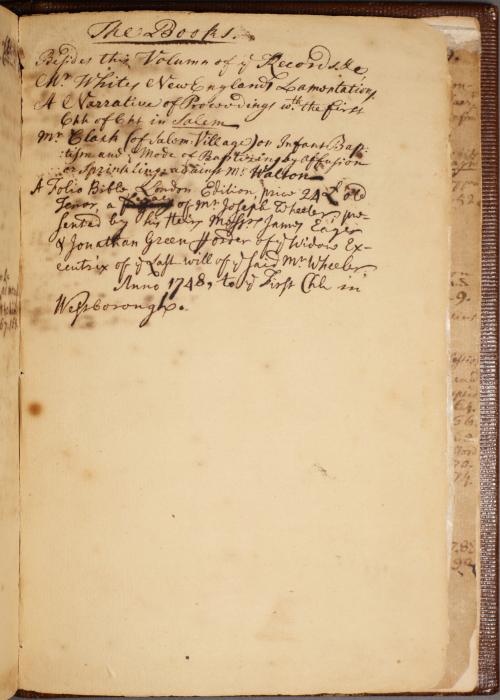 The Books.
Besides this Volumn of ye Records &c
Mr. Whites New England's Lamentations
A Narrative of Proceedings wth. the first
Chh of Cht in Salem
Mr Clark (of Salem Village) on Infant Bap-
tism and Mode of Baptizing by affusion
or Sprinkling, against Mr. Walton
A Folio Bible, London Edition, price 24£ old
Tenor, a of Mr. Joseph Wheeler, pre-
sented by his Heirs Messrs James Eager
& Jonathan Green order of ye Widow Ex-
ecutrix of ye Last will of ye said Mr. Wheeler
Anno 1748, to ye First Chh in
Westborough.